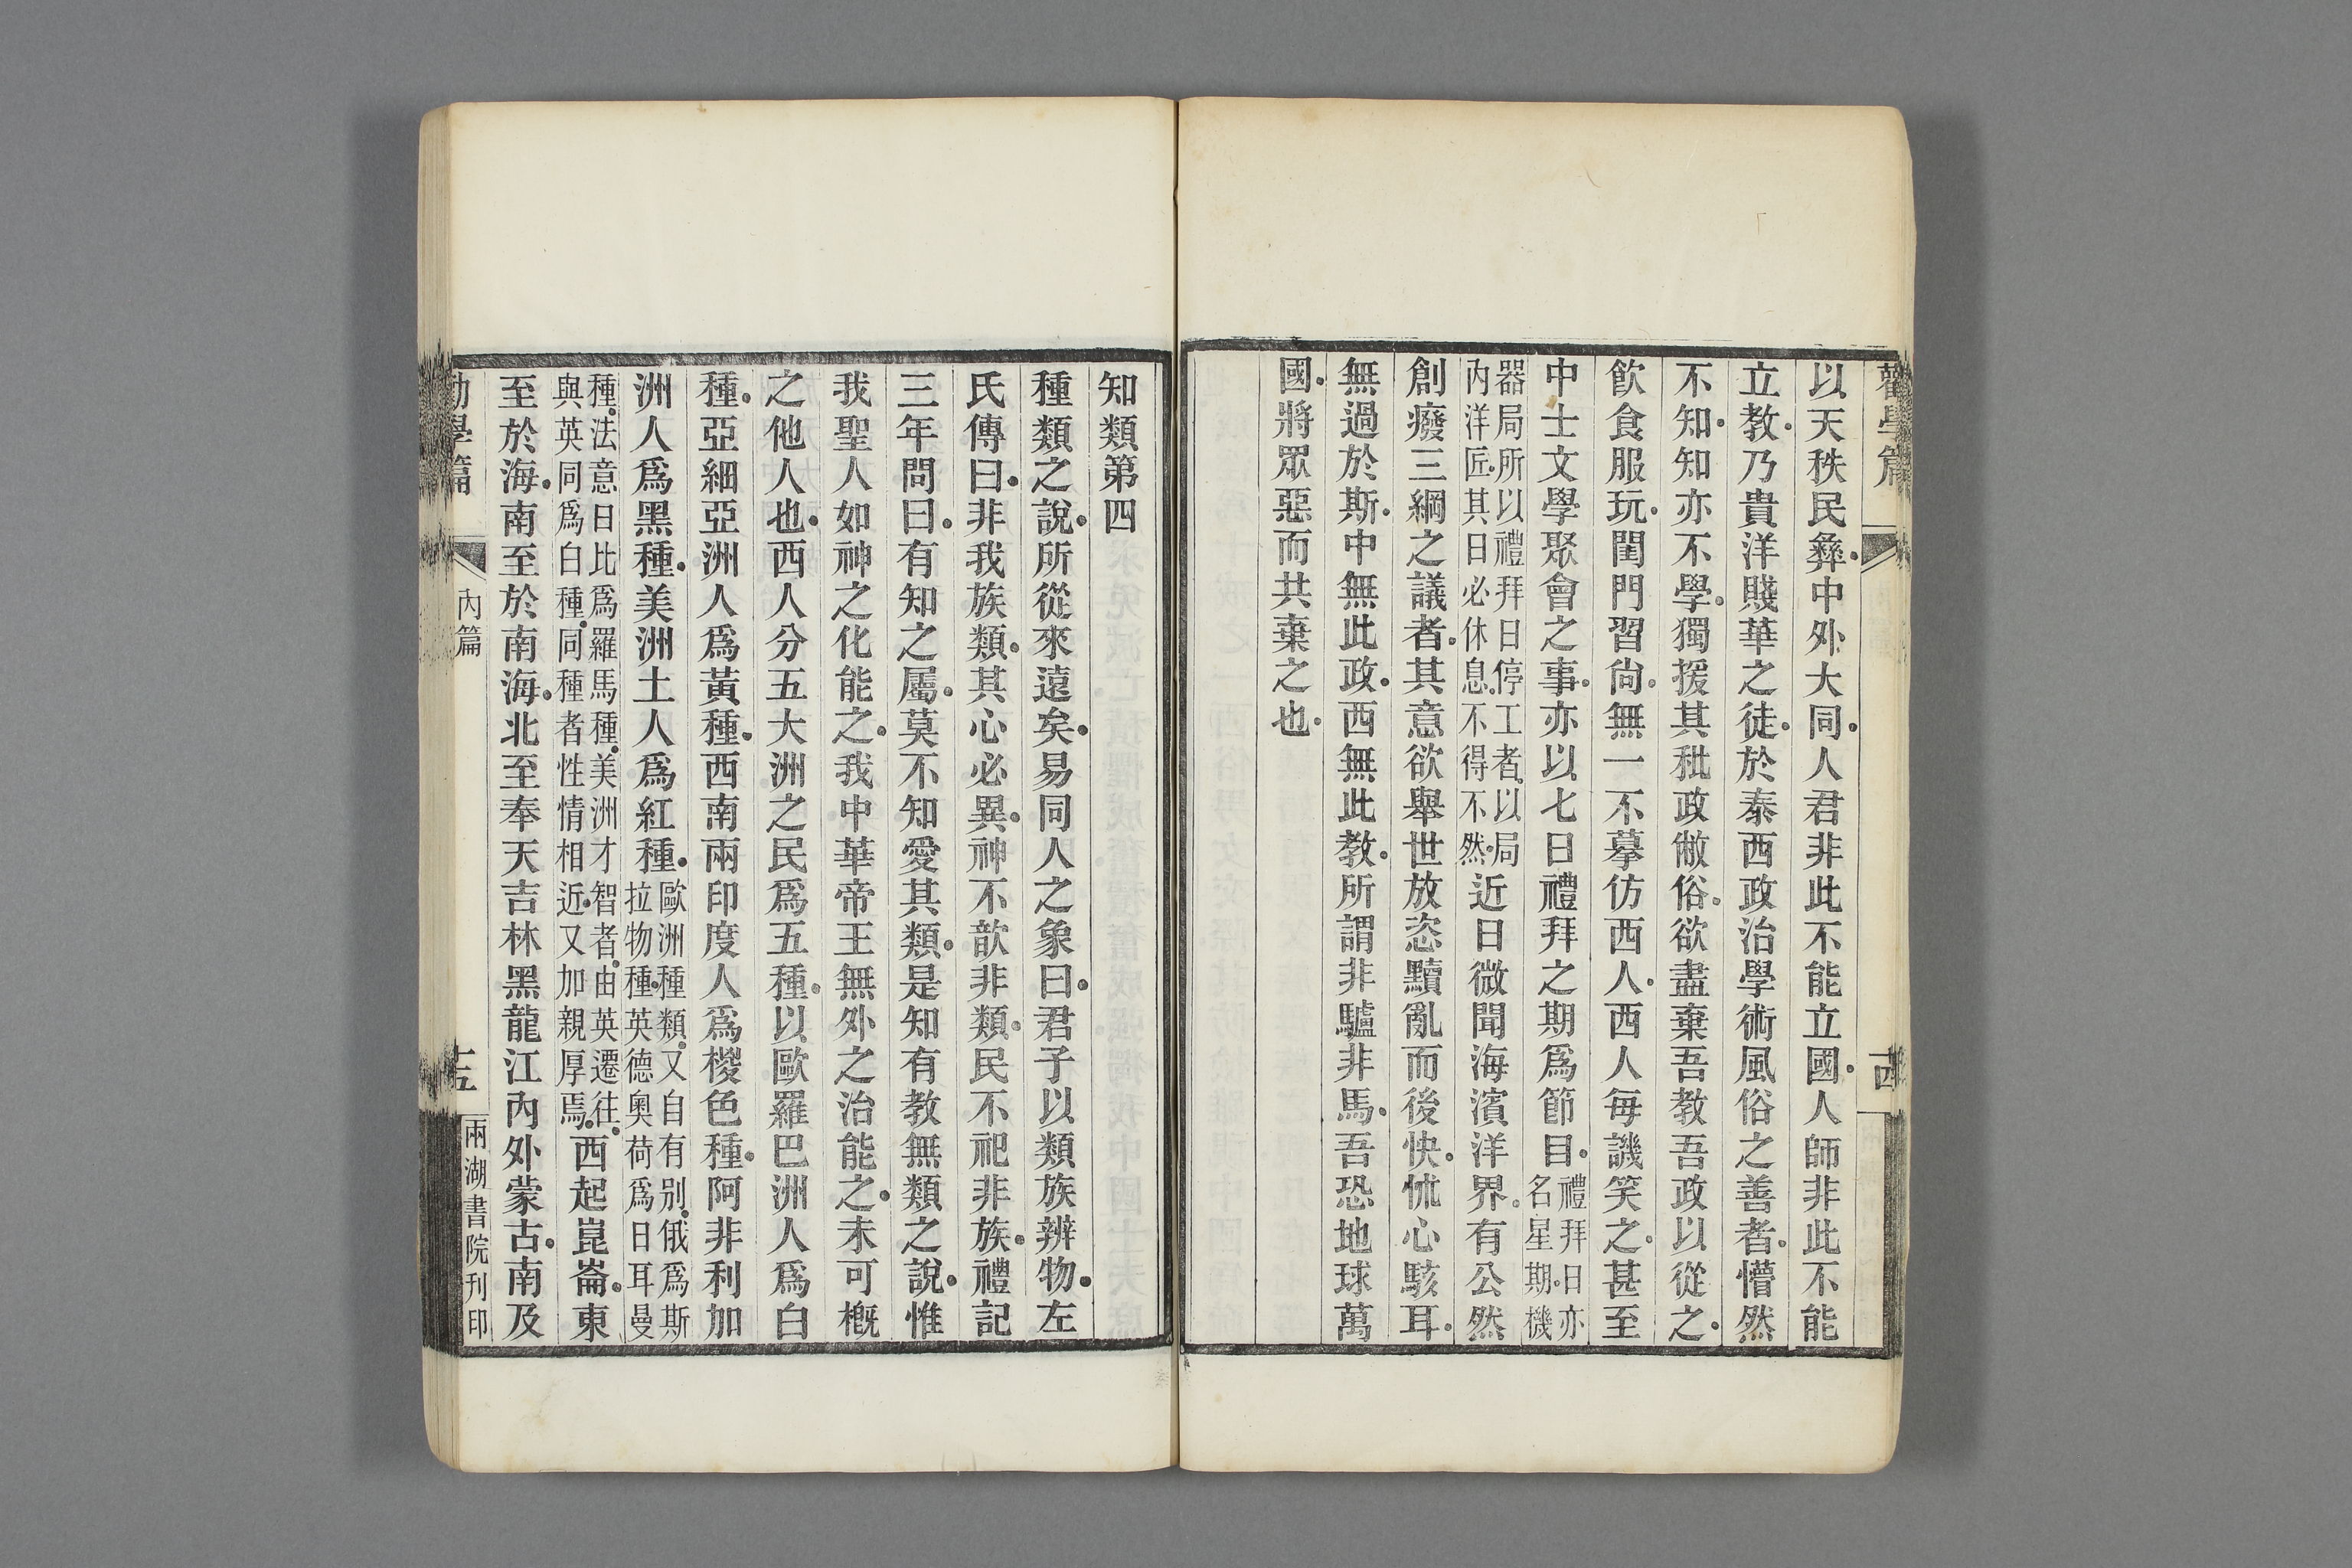 勸學篇
以天秩民彝中外大同人君非此不能立國人師非此不能
立教乃貴洋賤華之徒於泰西政治學術風俗之善者懵然
不知知亦不學獨援其秕政敝俗欲盡棄吾教吾政以從之
飲食服玩閨門習尙無一不摹仿西人西人每譏笑之甚至
中士文學聚會之事亦以七日禮拜之期爲節目禮拜日亦名星期機
器局所以禮拜日停工者以局內洋匠其日必休息不得不然近日微聞海濱洋界有公然
創廢三綱之議者其意欲舉世放恣黷亂而後快怵心駭耳
無過於斯中無此政西無此教所謂非驢非馬吾恐地球萬
國將眾惡而共棄之也
知類第四
種類之說所從來遠矣易同人之象曰君子以類族辨物左
氏傳曰非我族類其心必異神不歆非類民不祀非族禮記
三年問曰有知之屬莫不知愛其類是知有教無類之說惟
我聖人如神之化能之我中華帝王無外之治能之未可槪
之他人也西人分五大洲之民爲五種以歐羅巴洲人爲白
種亞細亞洲人爲黃種西南兩印度人爲椶色種阿非利加
洲人爲黑種美洲土人爲紅種歐洲種類又自有別俄爲斯拉物種英德奧荷爲日耳曼
種法意日比爲羅馬種美洲才智者由英遷往與英同爲白種同種者性情相近又加親厚焉西起崑崙東
至於海南至於南海北至奉天吉林黑龍江內外蒙古南及
學篇
內篇
十五
兩湖書院刊印